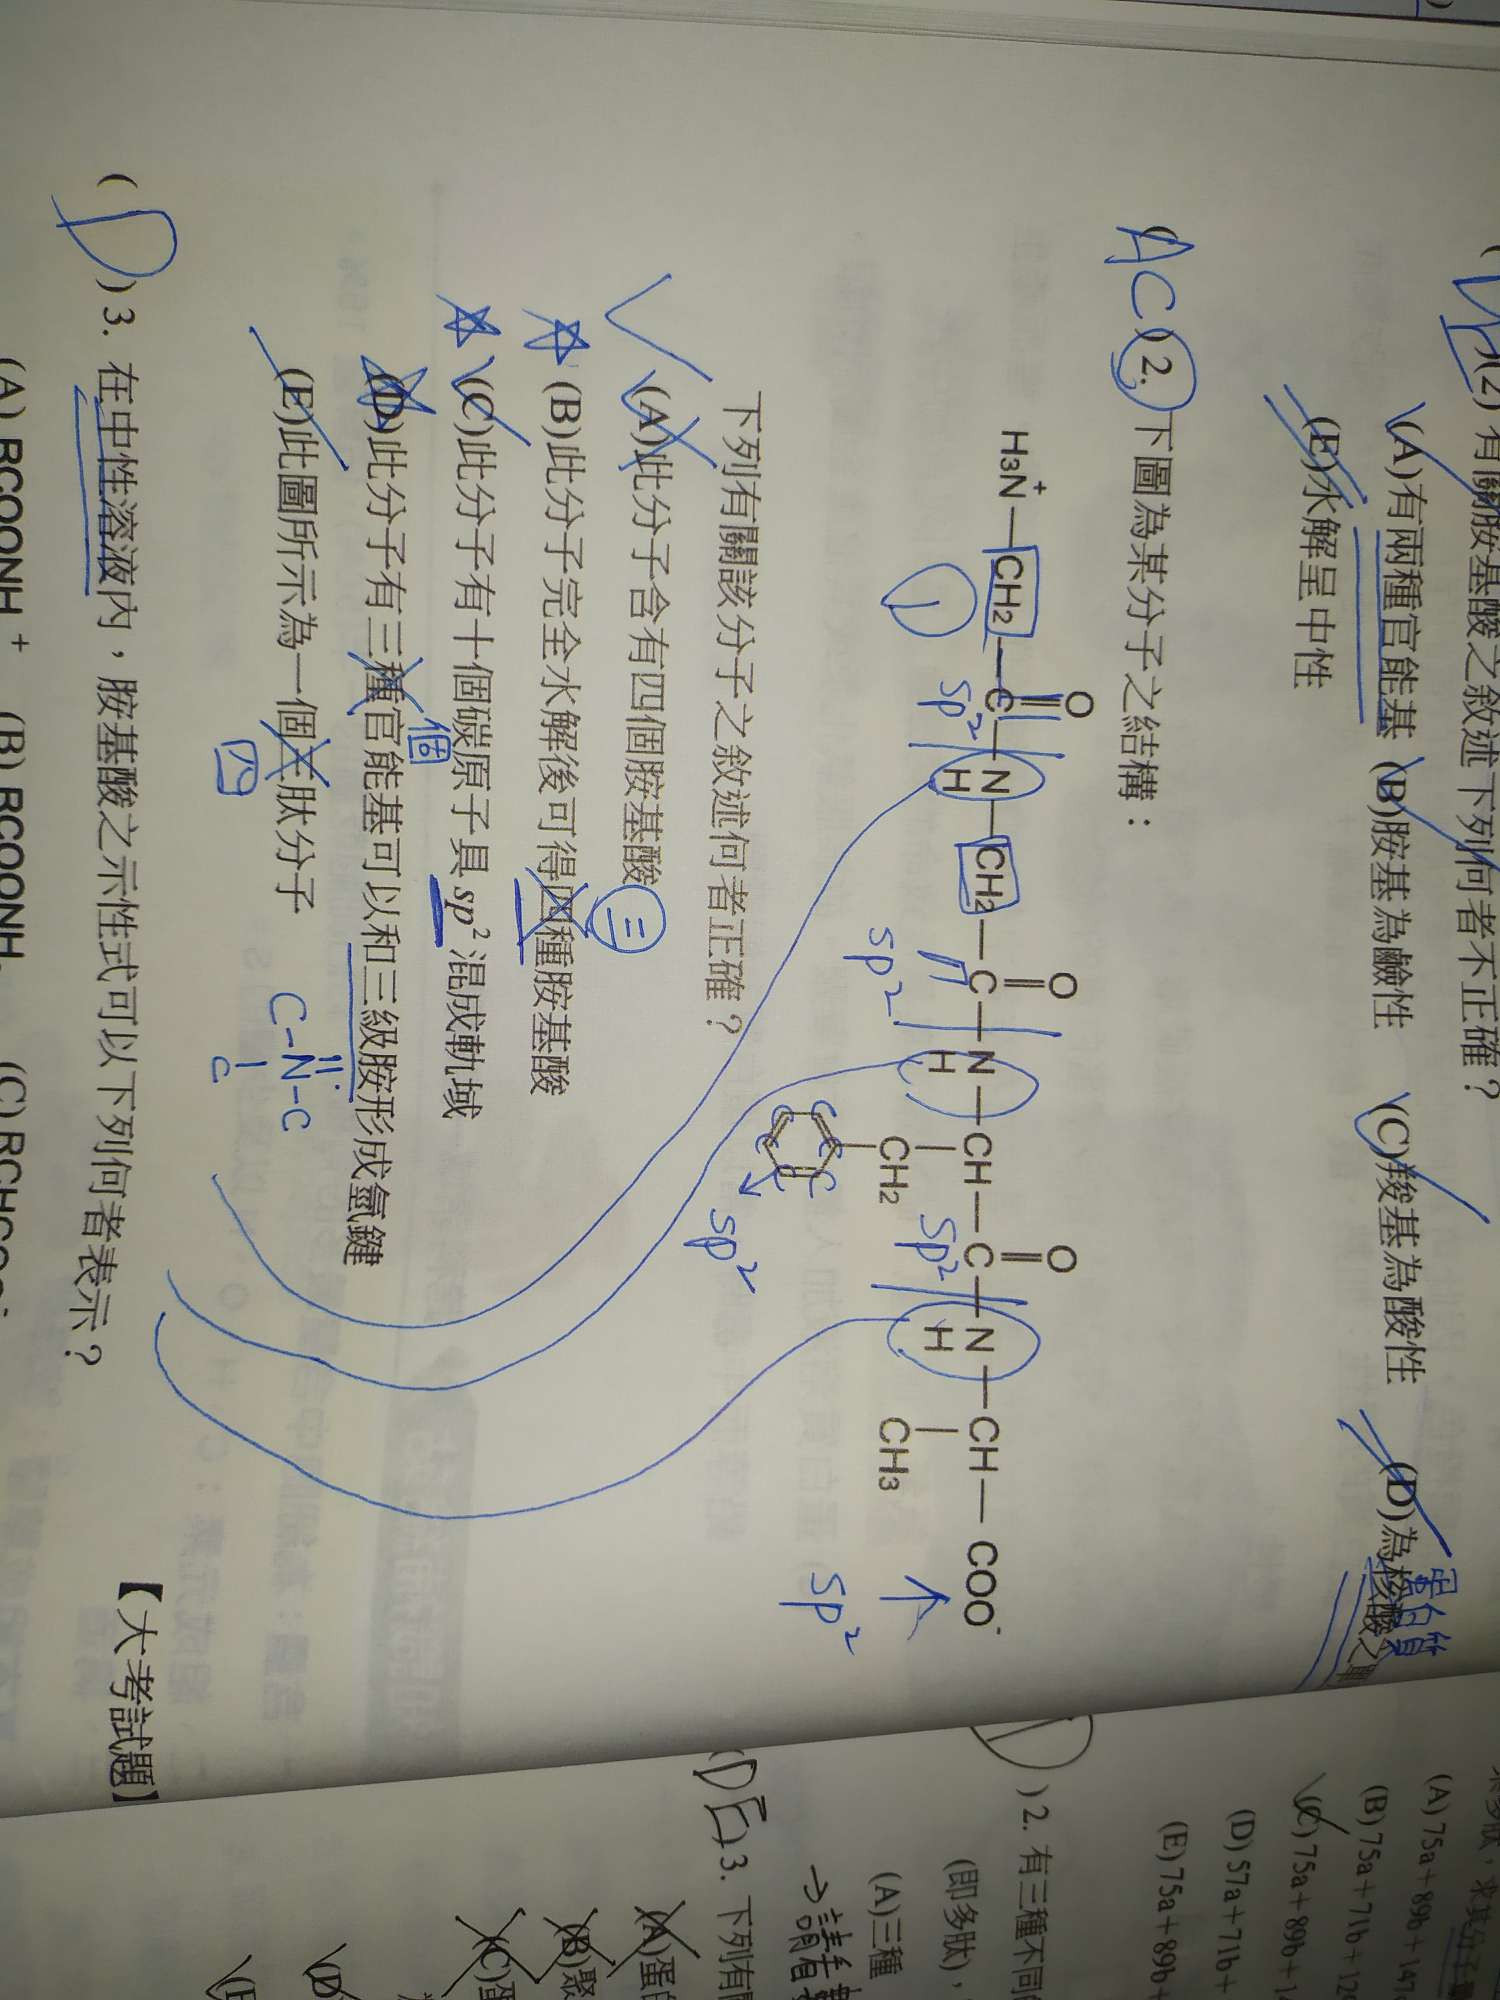 )(2) 有關胺基酸之敘述下列何者不正確？
(A)有兩種官能基 (B)胺基為鹼性 (C)羧基為酸性 (D)為核酸之
蛋白質
(E)水解呈中性
(AC)2. 下圖為某分子之結構：
O O O
H3N+—CH2—C—N—CH2—C—N—CH—C—N—CH—COO-
H H H
CH2 CH3
sp2 sp2 sp2 sp2
C C C C C sp2
下列有關該分子之敘述何者正確？
(A)此分子含有四個胺基酸
三
(B)此分子完全水解後可得四種胺基酸
(C)此分子有十個碳原子具 sp2 混成軌域
個
(D)此分子有三種官能基可以和三級胺形成氫鍵
C-N-C
C
(E)此圖所示為一個三肽分子
四
(D)3. 在中性溶液內，胺基酸之示性式可以下列何者表示？
【大考試題】
(A) RCOONH+ (B) RCOONH (C) RCHCO
(A)75a+89b+147c
(B)75a+71b+12
(C)75a+89b+1
(D)57a+71b+
(E)75a+89b+
)2. 有三種不同
(即多肽)，
(A)三種
(DE)3. 下列有關
(A)蛋白
(B)聚
(C)蛋
(D)